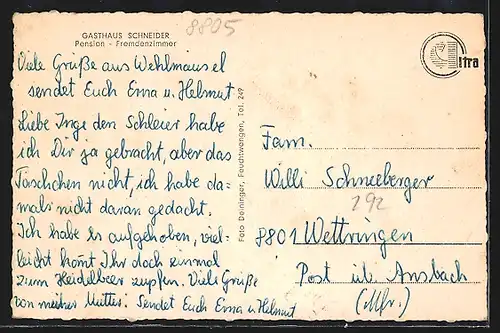 8805
GASTHAUS SCHNEIDER
Pension - Fremdenzimmer
Viele Grüße aus Wehlmäusel
sendet Euch Erna u. Helmut
Liebe Inge den Schleier habe
ich Dir ja gebracht, aber das
Täschchen nicht, ich habe da-
mals nicht daran gedacht.
Ich habe es aufgehoben, viel-
leicht kommt Ihr doch einmal
zum Heidelbeer zupfen. Viele Grüße
von meiner Mutter. Sendet Euch Erna u Helmut
Foto Deininger, Feuchtwangen, Tel. 249
Ultra
Fam.
Willi Schneeberger
292
8801 Wettringen
Post üb. Ansbach
(Mfr.)